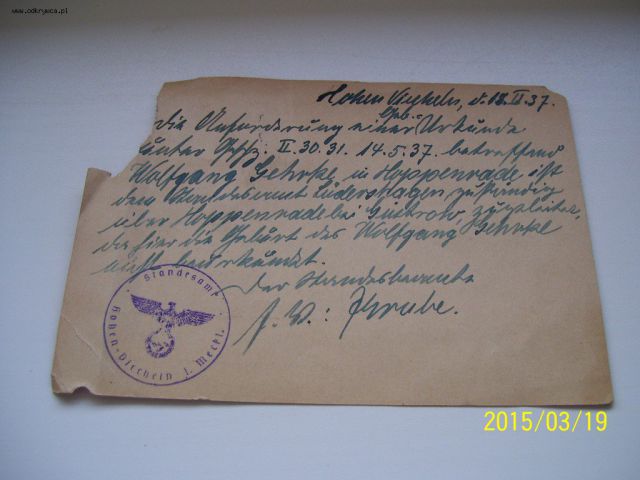 www.odkrywca.pl
Hohen Viecheln, d. 18. II. 37.
Geb.-
Die Anforderung einer Urkunde
unter II. 30. 31. 14.5.37. betreffend
Wolfgang Gehrke in Hoppenrade ist
dem Standesamt Lüdershagen zuständig
über Hoppenrade bei Güstrow, zuzuleiten,
da hier die Geburt des Wolfgang Gehrke
nicht beurkundet.
Der Standesbeamte
J. V.:
Standesamt
Hohen-Viecheln i. Meckl.
2015/03/19